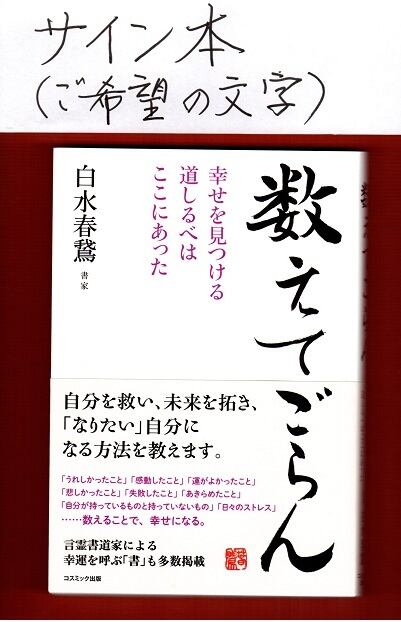 サイン本
(ご希望の文字)
数えてごらん
幸せを見つける
道しるべは
ここにあった
白水春鵞
書家
自分を救い、未来を拓き、
「なりたい」自分に
なる方法を教えます。
「うれしかったこと」「感動したこと」「運がよかったこと」
「悲しかったこと」「失敗したこと」「あきらめたこと」
「自分が持っているものと持っていないもの」「日々のストレス」
……数えることで、幸せになる。
言霊書道家による
幸運を呼ぶ「書」も多数掲載
コスミック出版